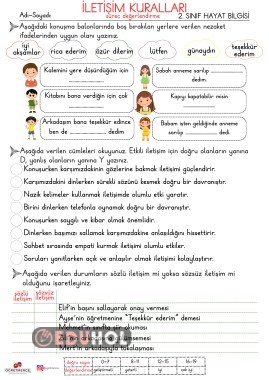 İLETİŞİM KURALLARI
Adı-Soyadı: süreç değerlendirme 2. SINIF HAYAT BİLGİSİ
Aşağıdaki konuşma balonlarında boş bırakılan yerlere verilen nezaket
ifadelerinden uygun olanı yazınız.
iyi akşamlar
rica ederim
özür dilerim
lütfen
günaydın
teşekkür ederim
Kalemini yere düşürdüğüm için
Sabah anneme sarılıp
dedim.
Kitabını bana verdiğin için çok
Kapıyı kapatabilir misin
Arkadaşım bana teşekkür edince
ben de dedim.
Babam işten geldiğinde anneme
sarılıp dedi.
Aşağıda verilen cümleleri okuyunuz. Etkili iletişim için doğru olanların yanına
D, yanlış olanların yanına Y yazınız.
Konuşurken karşımızdakinin gözlerine bakmak iletişimi güçlendirir.
Karşımızdakini dinlerken sürekli sözünü kesmek doğru bir davranıştır.
Nazik kelimeler kullanmak iletişimde olumlu etki yaratır.
Birini dinlerken telefonla oynamak doğru bir davranıştır.
Konuşurken saygılı ve kibar olmak önemlidir.
Dinlerken başımızı sallamak karşımızdakine anlaşıldığını hissettirir.
Sohbet sırasında empati kurmak iletişimi olumlu etkiler.
Soruları yanıtlarken açık ve anlaşılır olmak iletişimi kolaylaştırır.
Aşağıda verilen durumların sözlü iletişim mi yoksa sözsüz iletişim mi
olduğunu işaretleyiniz.
sözlü iletişim
sözsüz iletişim
Elif'in başını sallayarak onay vermesi
Ayşe'nin öğretmenine "Teşekkür ederim" demesi
Mehmet'in sınıfta şiir okuması
Mert'in arkadaşıyla tokalaşması
doğru sayısı 0-7 8-11 12-15 16-19
değerlendirme geliştirilmeli yeterli iyi çok iyi